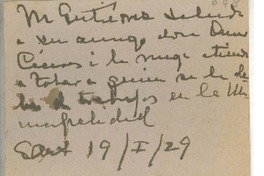 M Gutiérrez saluda
a su amigo don Omer
i le ruega atienda
a Tobar a quien se le de-
be trabajos en la Mu-
nicipalidad
19/I/29